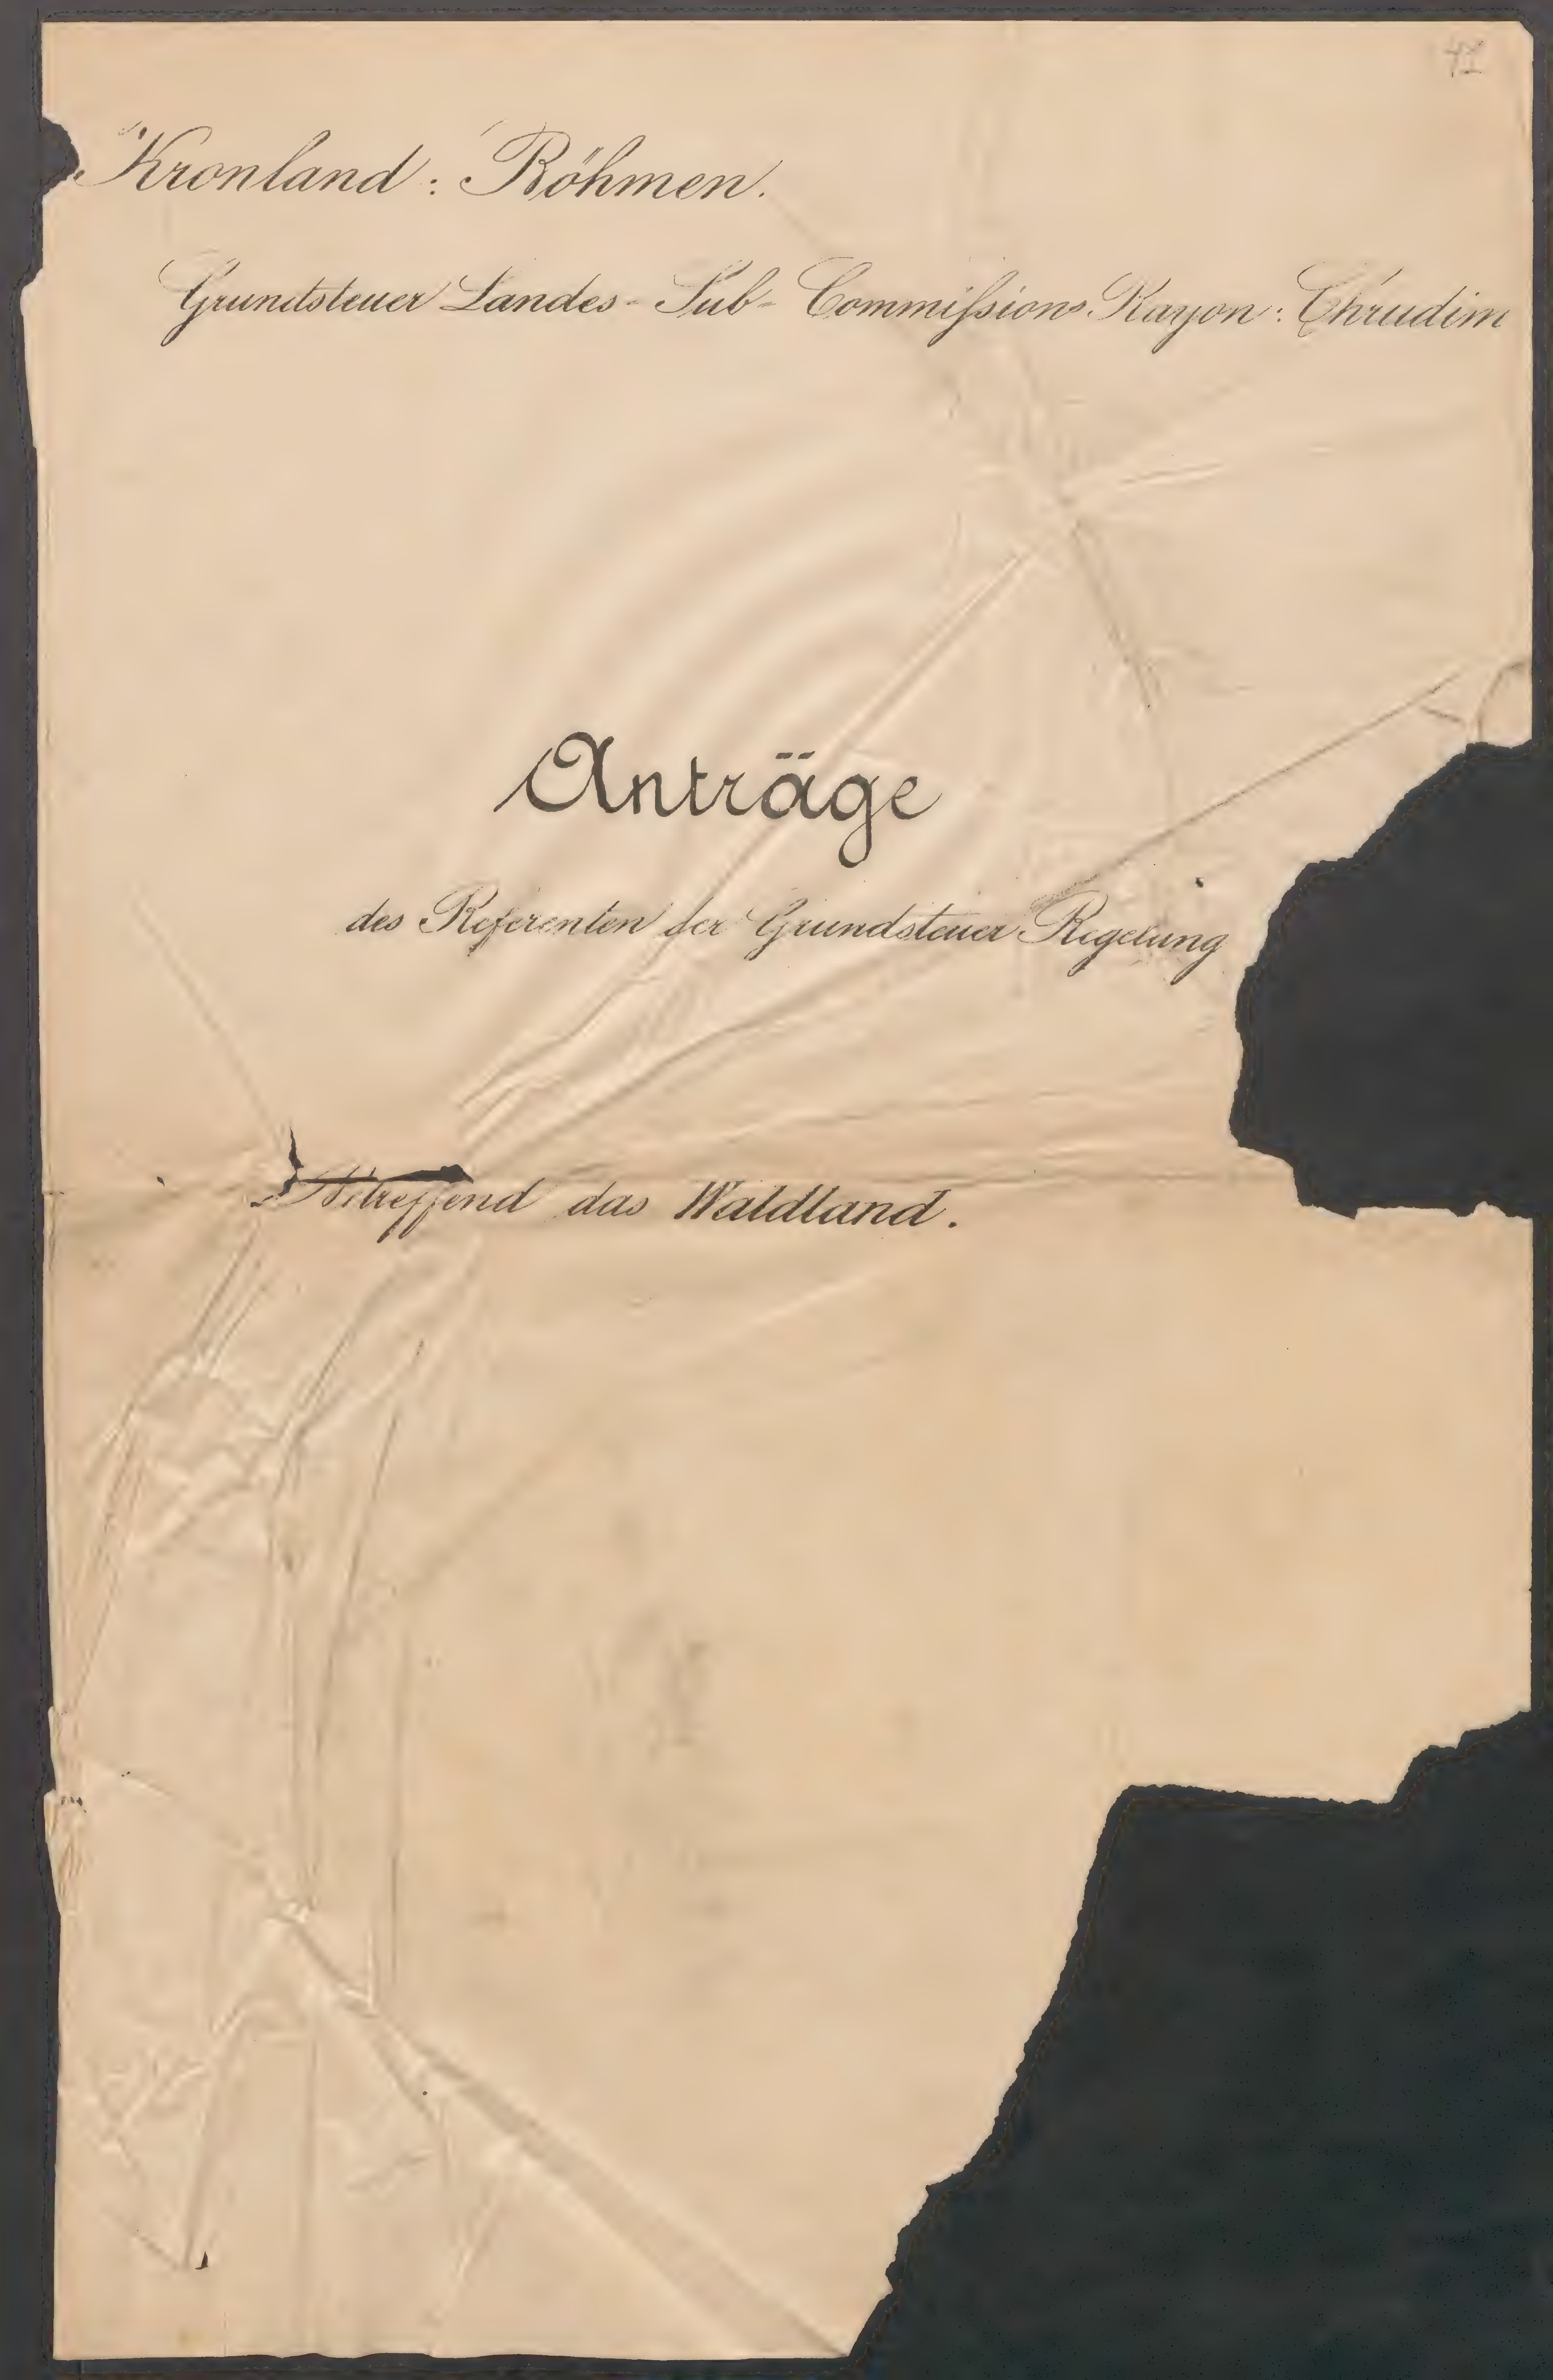 Kronland: Böhmen.
Grundsteuer Landes-Sub-Commiſsions-Rayon: Chrudim
Anträge
des Referenten der Grundsteuer Regelung
Betreffend das Waldland.